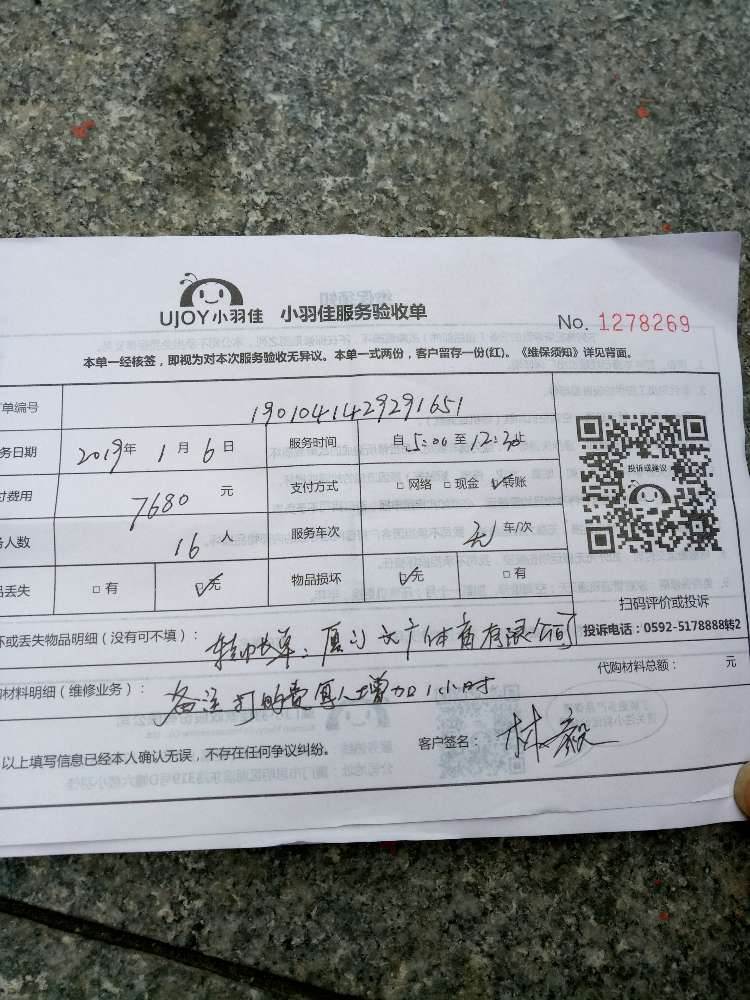 UJOY小羽佳 小羽佳服务验收单
No. 1278269
本单一经核签，即视为对本次服务验收无异议。本单一式两份，客户留存一份(红)。《维保须知》详见背面。
单编号 1901041429291651
务日期 2019年1月6日 服务时间 自5:00至12:30止
付费用 7680元 支付方式 □网络 □现金 ☑转账
务人数 16人 服务车次 车/次
品丢失 □有 ☑无 物品损坏 ☑无 □有
投诉或建议
扫码评价或投诉
投诉电话：0592-5178888转2
坏或丢失物品明细（没有可不填）： 文广体育有限公司
代购材料总额： 元
材料明细（维修业务）： 备注打的费 每人增加1小时
以上填写信息已经本人确认无误，不存在任何争议纠纷。
客户签名： 林毅